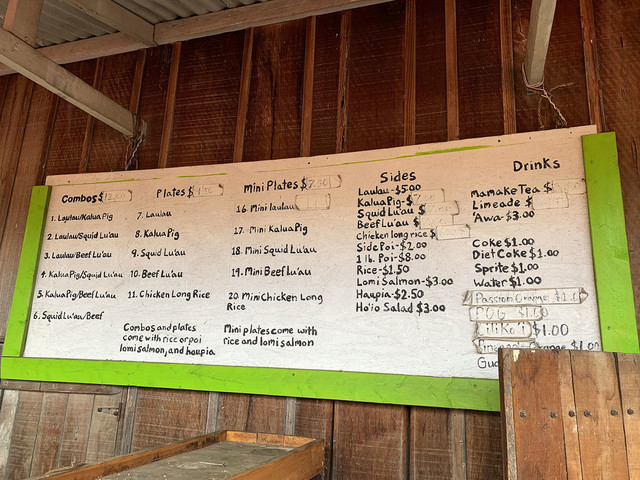 Combos $
1. Laulau/Kalua Pig
2. Laulau/Squid Lu'au
3. Laulau/Beef Lu'au
4. Kalua Pig/Squid Lu'au
5. Kalua Pig/Beef Lu'au
6. Squid Lu'au/Beef
Plates $
7. Laulau
8. Kalua Pig
9. Squid Lu'au
10. Beef Lu'au
11. Chicken Long Rice
Combos and plates
come with rice or poi
lomi salmon, and haupia
Mini Plates $7.50
16. Mini laulau
17. Mini Kalua Pig
18. Mini Squid Lu'au
19. Mini Beef Lu'au
20 Mini Chicken Long
Rice
Mini plates come with
rice and lomi salmon
Sides
Laulau-$5.00
Kalua Pig-$
Squid Lu'au $
Beef Lu'au $
Chicken long rice $
Side Poi-$2.00
1 lb. Poi-$8.00
Rice-$1.50
Lomi Salmon-$3.00
Haupia-$2.50
Ho'io Salad $3.00
Drinks
Mamake Tea $
Limeade $
'Awa-$3.00
Coke $1.00
Diet Coke $1.00
Sprite $1.00
Water $1.00
Passion Orange $1.0
POG $1.00
Liliko'i $1.00
Orange $1.00
Gua